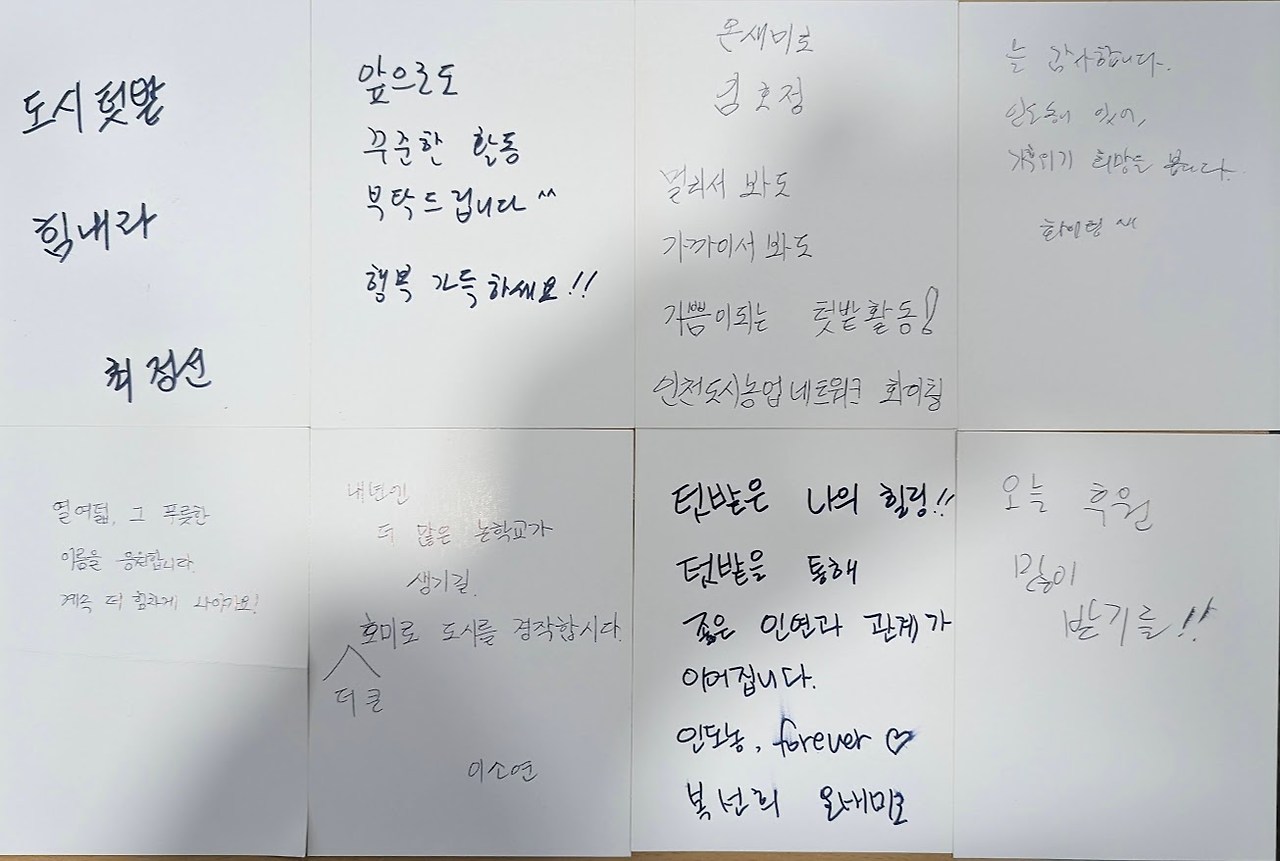 도시텃밭
힘내라
최정선
앞으로도
꾸준한 활동
부탁드립니다 ^^
행복 가득하세요!!
온새미로
김호정
멀리서 봐도
가까이서 봐도
기쁨이되는 텃밭활동!
인천도시농업네트워크 화이팅
늘 감사합니다.
인도농이 있어,
기후위기 희망을 봅니다.
화이팅
열여덟, 그 푸릇한
이름을 응원합니다.
계속 더 힘차게 나아가요!
내년엔
더 많은 논학교가
생기길.
호미로 도시를 경작합시다.
더 큰
이소연
텃밭은 나의 힐링!!
텃밭을 통해
좋은 인연과 관계가
이어집니다.
인도농, forever ♡
복선희 온새미로
오늘 후원
많이
받기를!!